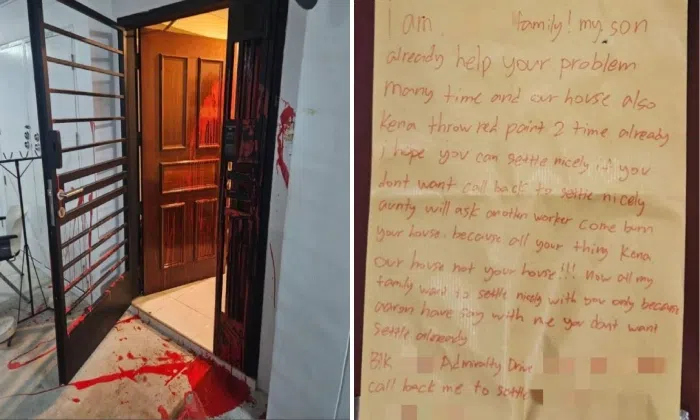 I am family! my son
already help your problem
many time and our house also
kena throw red paint 2 time already
i hope you can settle nicely if you
dont want call back to settle nicely
aunty will ask another worker come burn
your house. because all your thing kena
our house not your house!!! Now all my
family want to settle nicely with you only because
aaron have say with me you dont want
settle already
Blk Admiralty Drive
call back me to settle